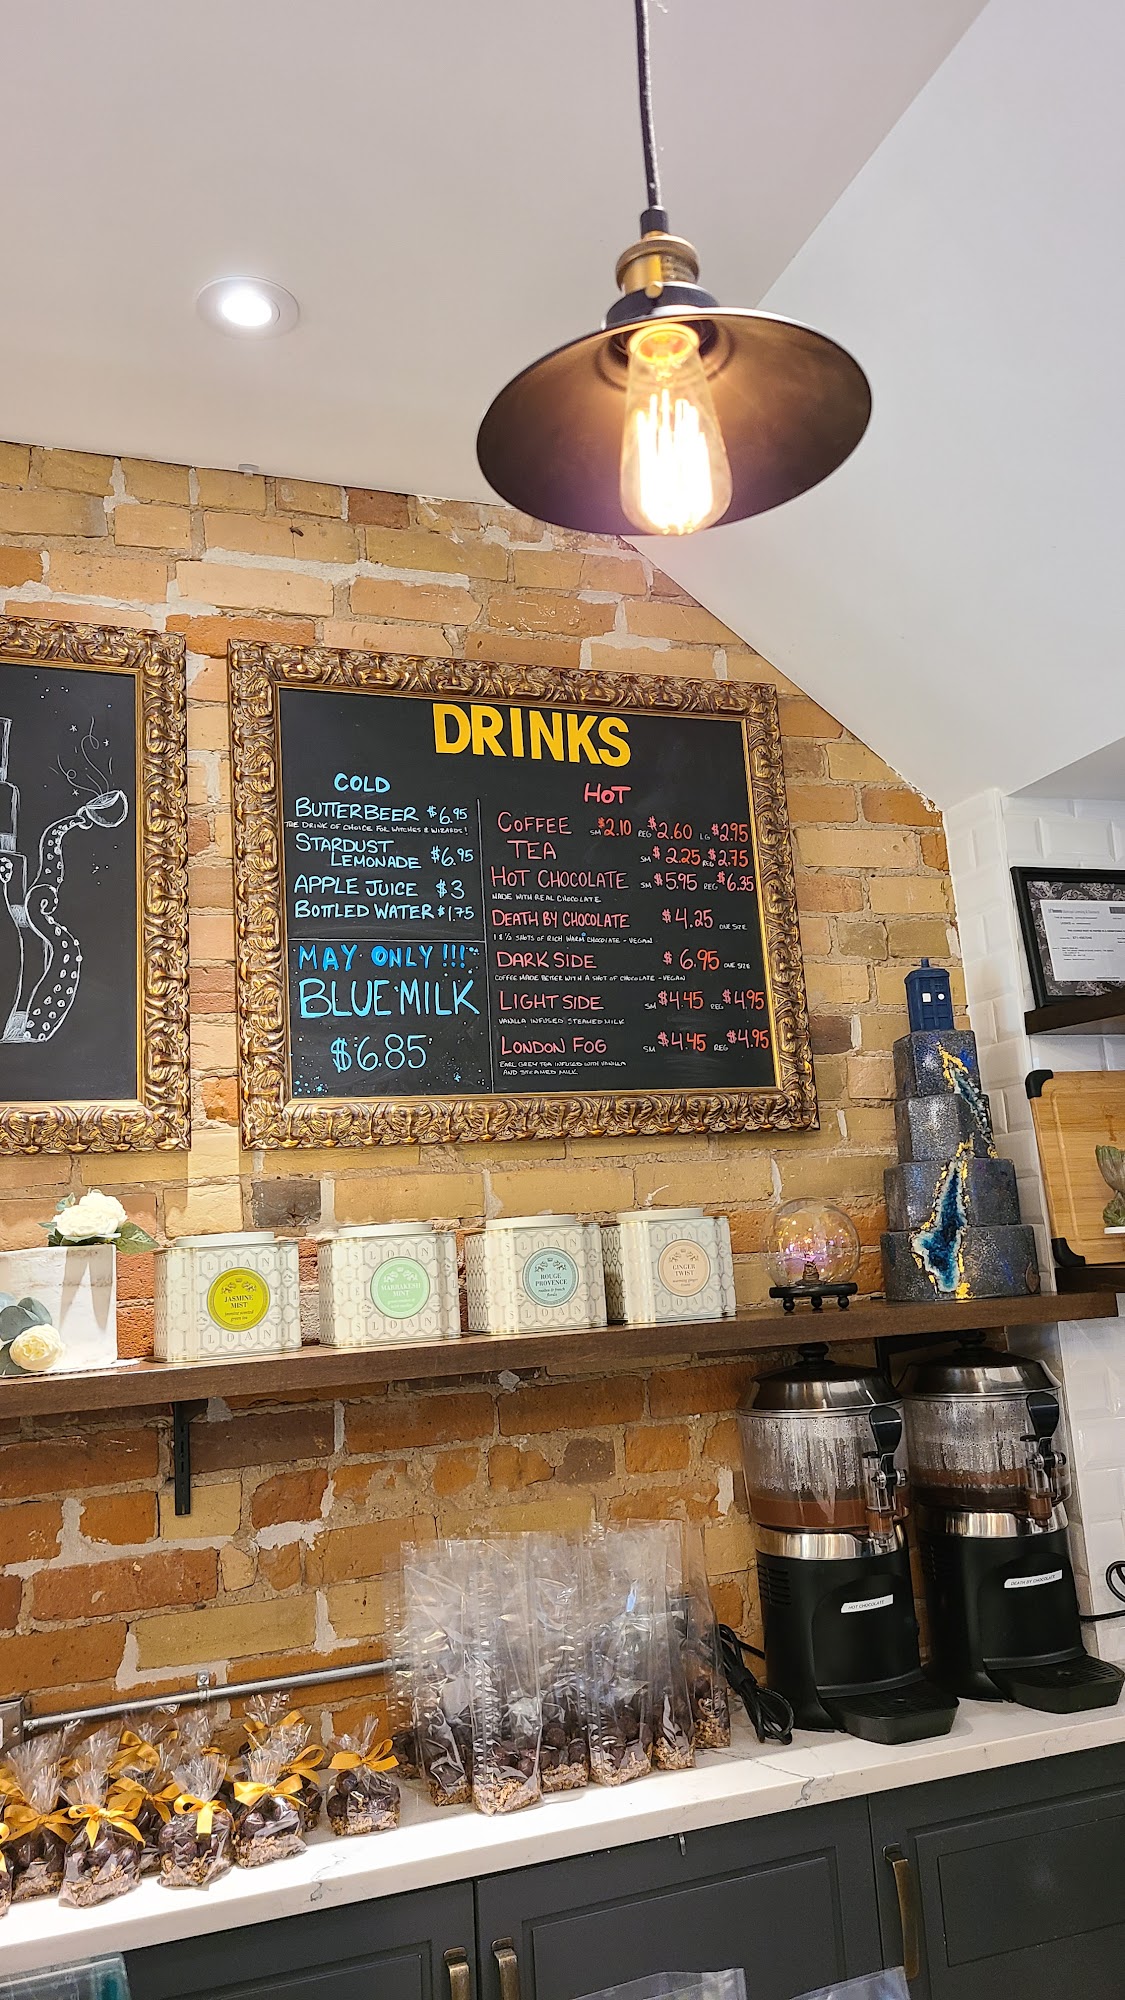 DRINKS
COLD
BUTTERBEER $6.95
THE DRINK OF CHOICE FOR WITCHES & WIZARDS!
STARDUST
LEMONADE $6.95
APPLE JUICE $3
BOTTLED WATER $1.75
MAY ONLY!!!
BLUE MILK
$6.85
HOT
COFFEE SM $2.10 REG $2.60 LG $2.95
TEA SM $2.25 REG $2.75
HOT CHOCOLATE SM $5.95 REG $6.35
MADE WITH REAL CHOCOLATE
DEATH BY CHOCOLATE $4.25 ONE SIZE
1 & 1/2 SHOTS OF RICH WARM CHOCOLATE - VEGAN
DARK SIDE $6.95 ONE SIZE
COFFEE MADE BETTER WITH A SHOT OF CHOCOLATE - VEGAN
LIGHT SIDE SM $4.45 REG $4.95
VANILLA INFUSED STEAMED MILK
LONDON FOG SM $4.45 REG $4.95
EARL GREY TEA INFUSED WITH VANILLA
AND STEAMED MILK
JASMINE
MIST
jasmine scented
green tea
LOAN
SLOAN
MARRAKESH
MIST
LOAN
SLOAN
ROUGE
PROVENCE
LOAN
GINGER
TWIST
HOT CHOCOLATE
DEATH BY CHOCOLATE